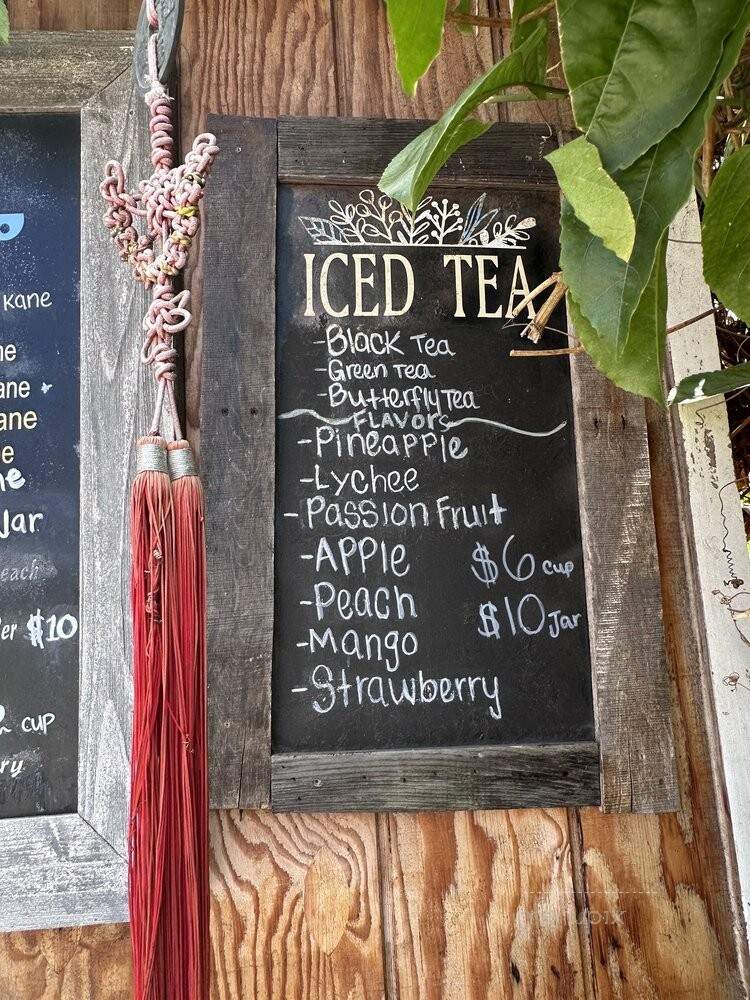 Kane
ne
ane
ane
e
ne
Jar
each
er $10
2 cup
ry
ICED TEA
-Black Tea
-Green Tea
-Butterfly Tea
FLAVORS
-Pineapple
-Lychee
-Passion Fruit
-APPle $6 cup
-Peach $10 Jar
-Mango
-Strawberry